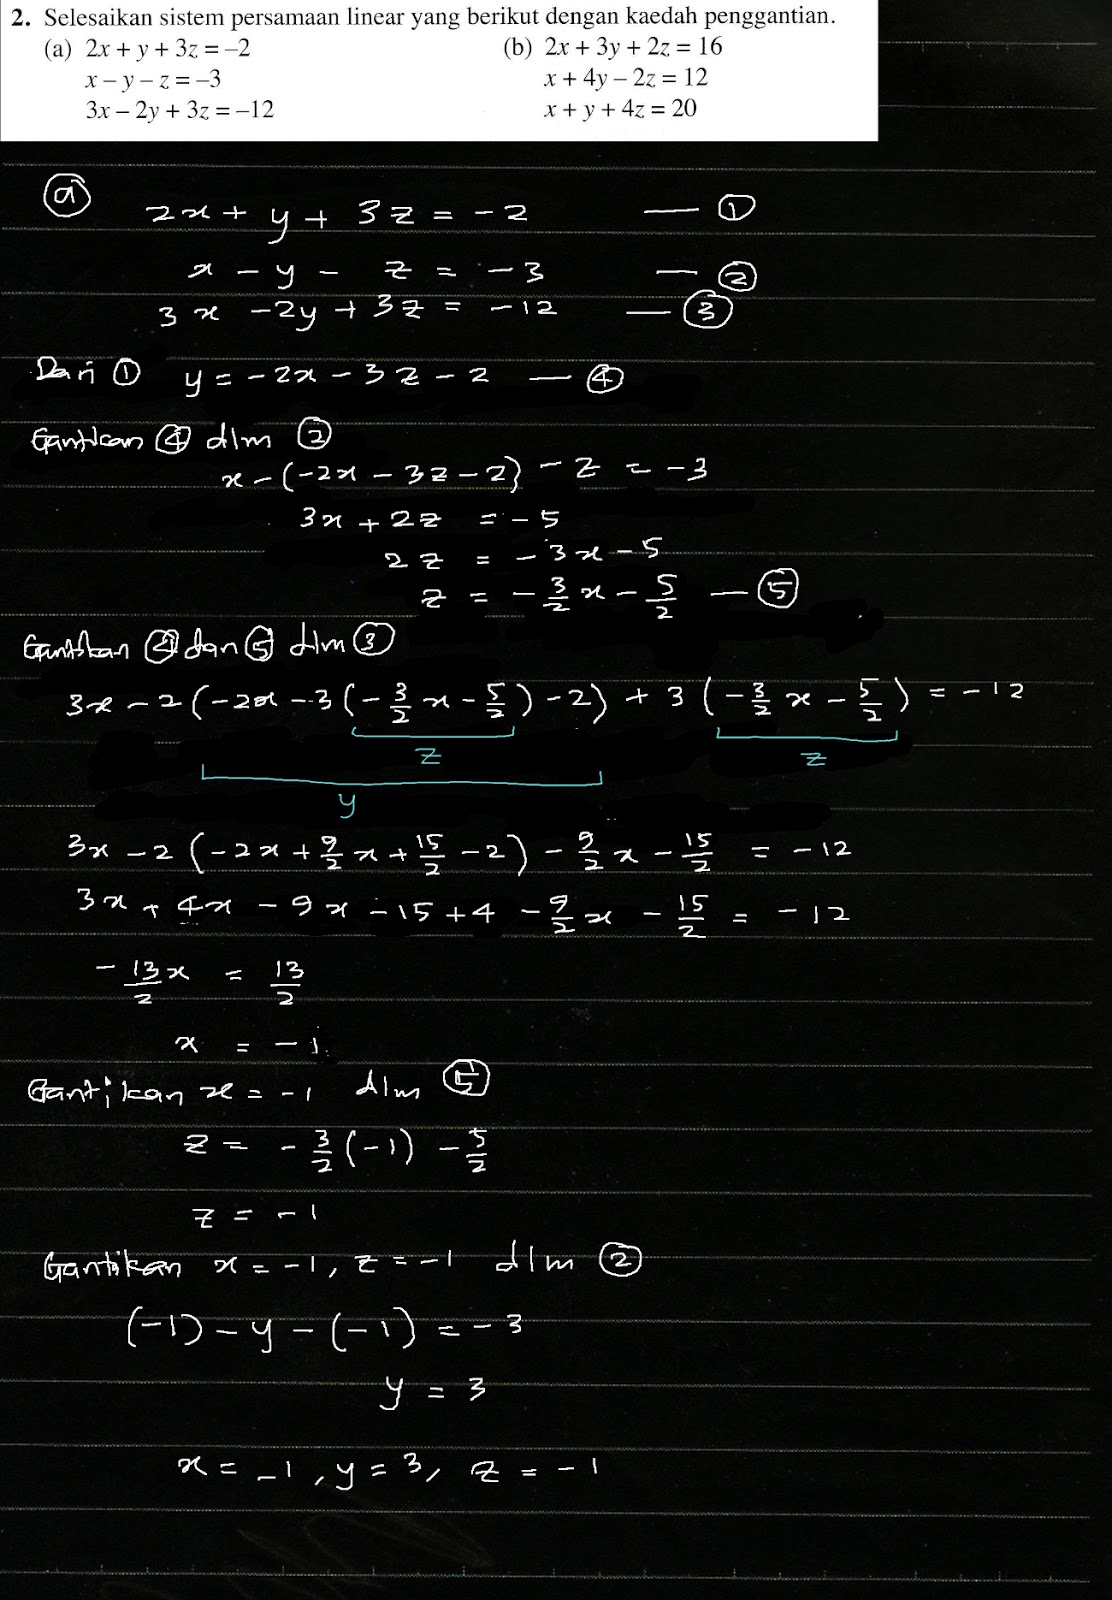 2. Selesaikan sistem persamaan linear yang berikut dengan kaedah penggantian.
(a) 2x + y + 3z = –2
x – y – z = –3
3x – 2y + 3z = –12
(b) 2x + 3y + 2z = 16
x + 4y – 2z = 12
x + y + 4z = 20
ⓐ
2x + y + 3z = -2 — ①
x - y - z = -3 — ②
3x - 2y + 3z = -12 — ③
Dari ① y = -2x - 3z - 2 — ④
Gantikan ④ dlm ②
x - (-2x - 3z - 2) - z = -3
3x + 2z = -5
2z = -3x - 5
z = -3/2 x - 5/2 — ⑤
Gantikan ④ dan ⑤ dlm ③
3x - 2(-2x - 3(-3/2 x - 5/2) - 2) + 3(-3/2 x - 5/2) = -12
z z
y
3x - 2(-2x + 9/2 x + 15/2 - 2) - 9/2 x - 15/2 = -12
3x + 4x - 9x - 15 + 4 - 9/2 x - 15/2 = -12
-13/2 x = 13/2
x = -1
Gantikan x = -1 dlm ⑤
z = -3/2 (-1) - 5/2
z = -1
Gantikan x = -1, z = -1 dlm ②
(-1) - y - (-1) = -3
y = 3
x = -1, y = 3, z = -1